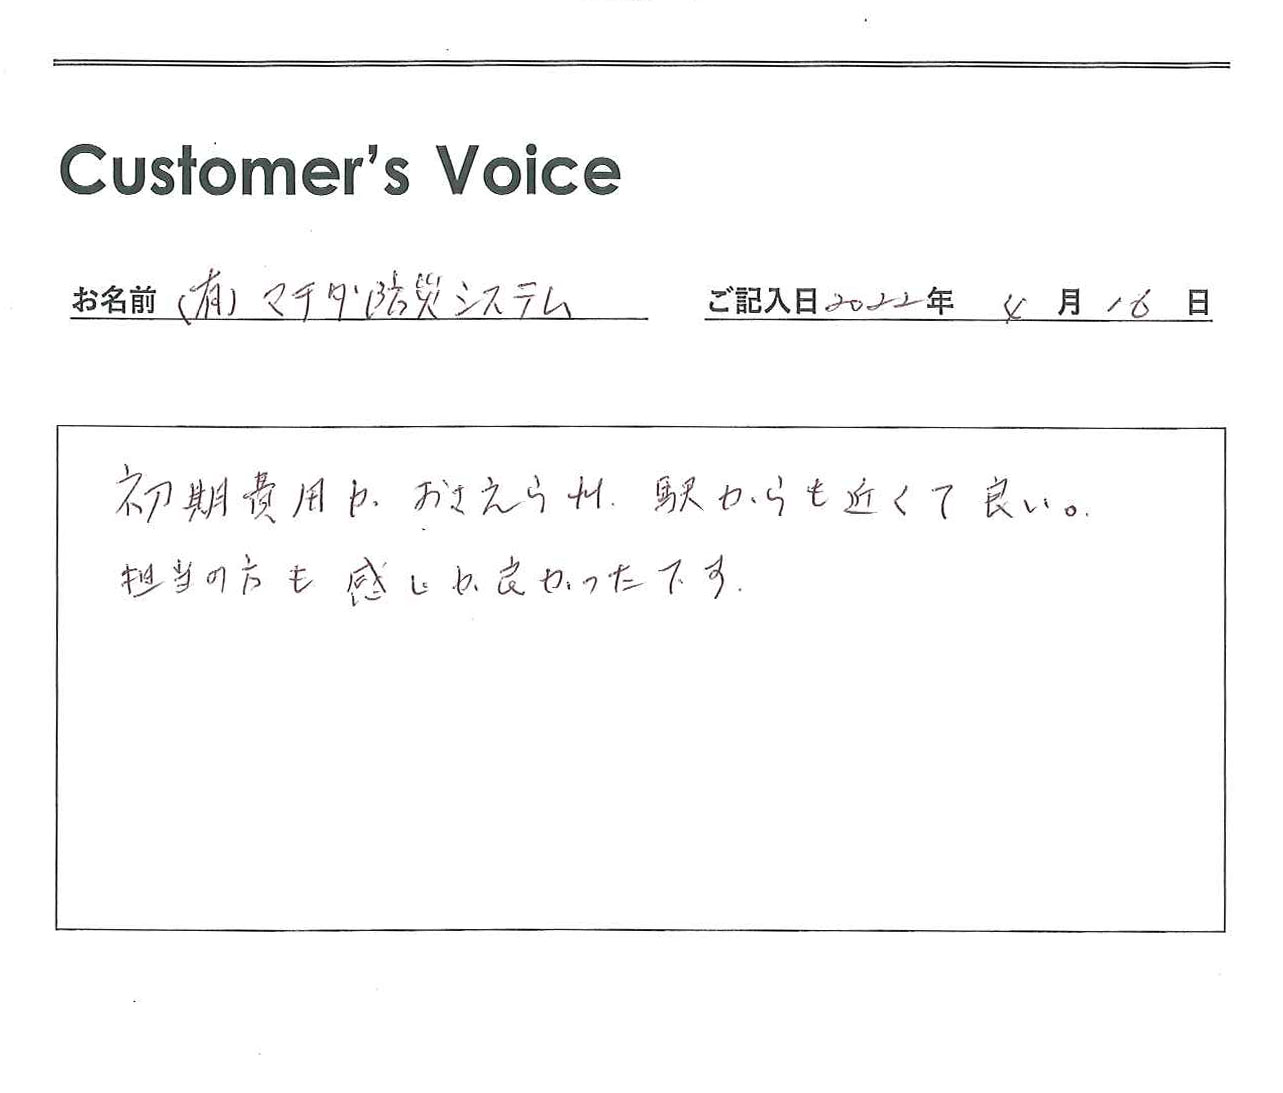 Customer's Voice
お名前 (有)マチダ防災システム ご記入日2022年 4月16日
初期費用が おさえられ. 駅からも近くて良い。
担当の方も 感じが良かったです.